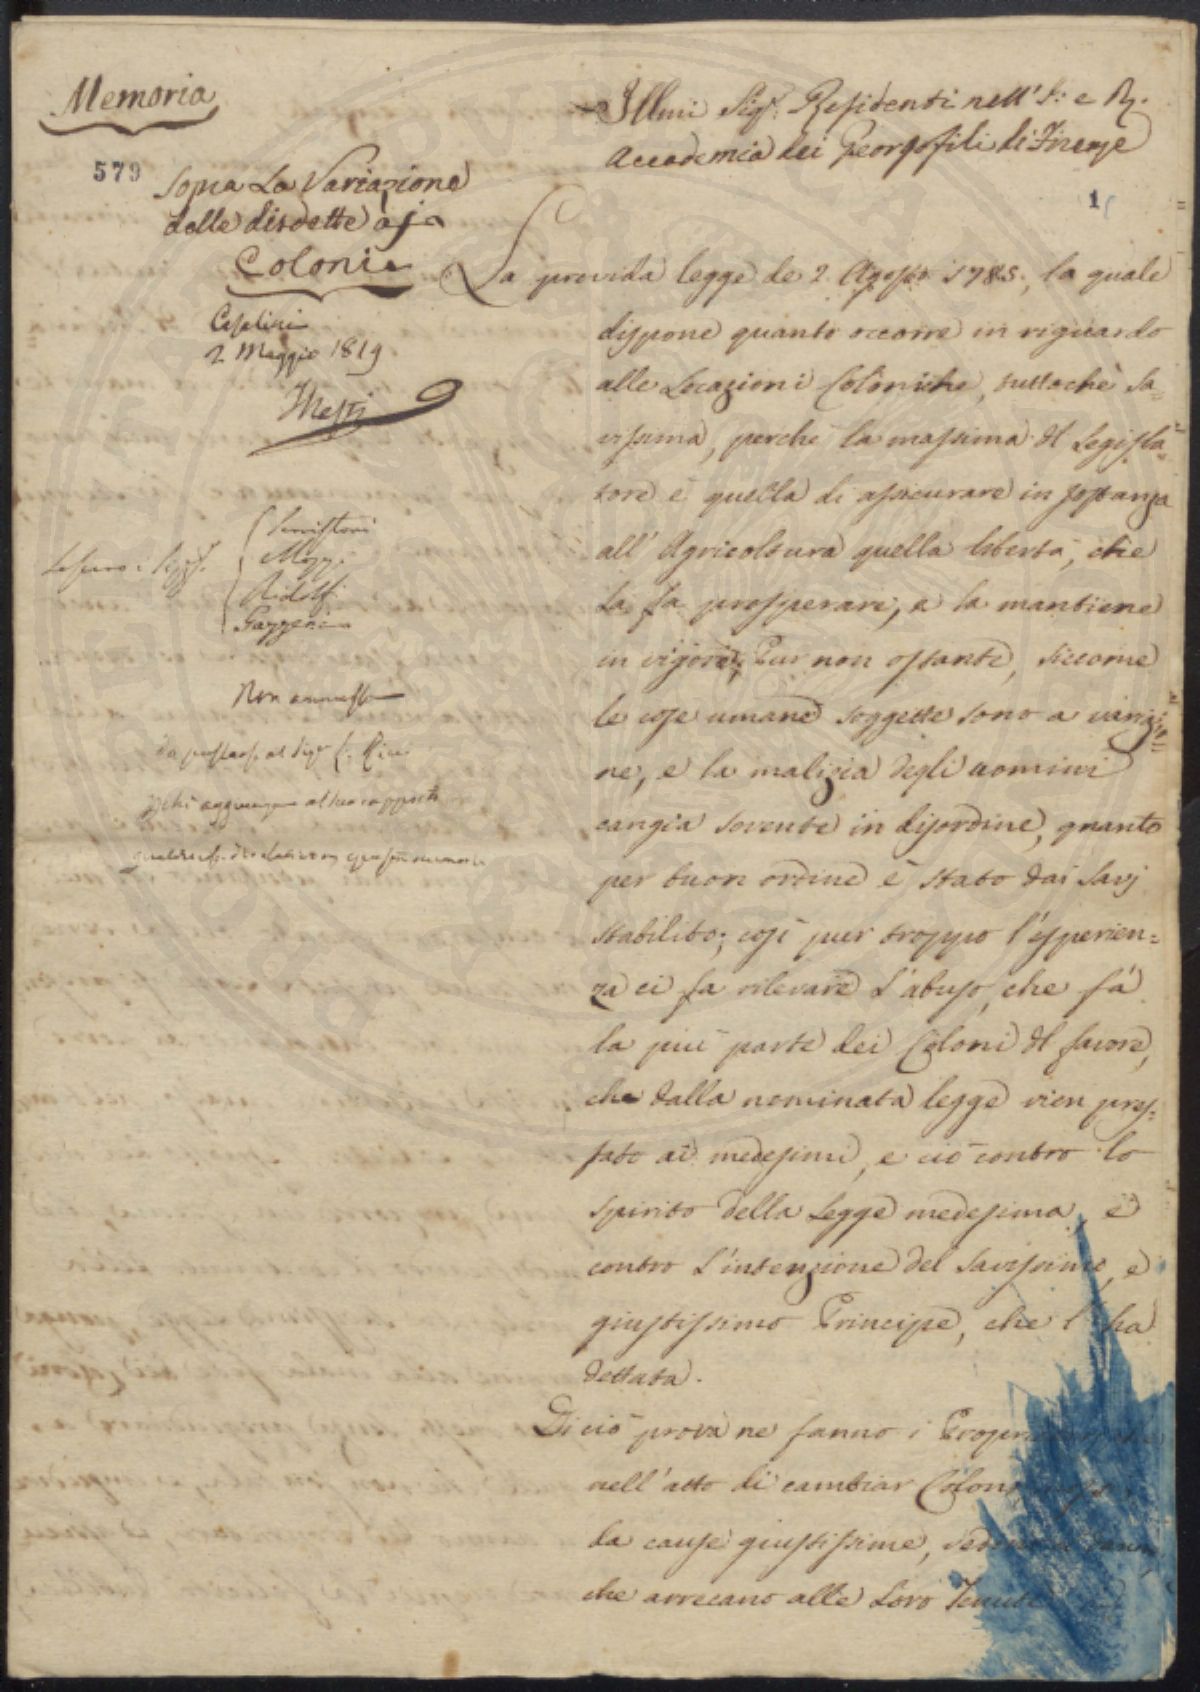 Memoria
579
Sopra La Variazione
delle disdette a j a
Colonie
2 Maggio 1819
Ridolfi
Gazzeri
Non ammessa
Illmi Sigi: Residenti nell' I: e R.
Accademia dei Georgofili di Firenze
1
La provida legge de 2. Agosto 1785., la quale
dispone quanto occorre in riguardo
alle Locazioni Coloniche, tuttochè Sa=
vissima, perchè la massima dl Legisla=
tore è quella di assicurare in sostanza
all' Agricoltura quella libertà, che
La fa prosperare, e la mantiene
in vigore; Pur non ostante, siccome
le cose umane soggette sono a variazio=
ne, e la malizia degli uomini
cangia sovente in disordine, quanto
per buon ordine è stato dai Savj
stabilito; così pur troppo l'esperien=
za ci fa rilevare L'abuso, che fà
la più parte dei Coloni dl favore,
che dalla nominata legge vien pres=
tato ai medesimi, e ciò contro lo
spirito della Legge medesima, e
contro L'intenzione del Savissimo, e
giustissimo Principe, che l'ha
dettata.
Di ciò prova ne fanno i
nell'atto di cambiar Coloni
da cause giustissime,
che arrecano alle Loro Tenute